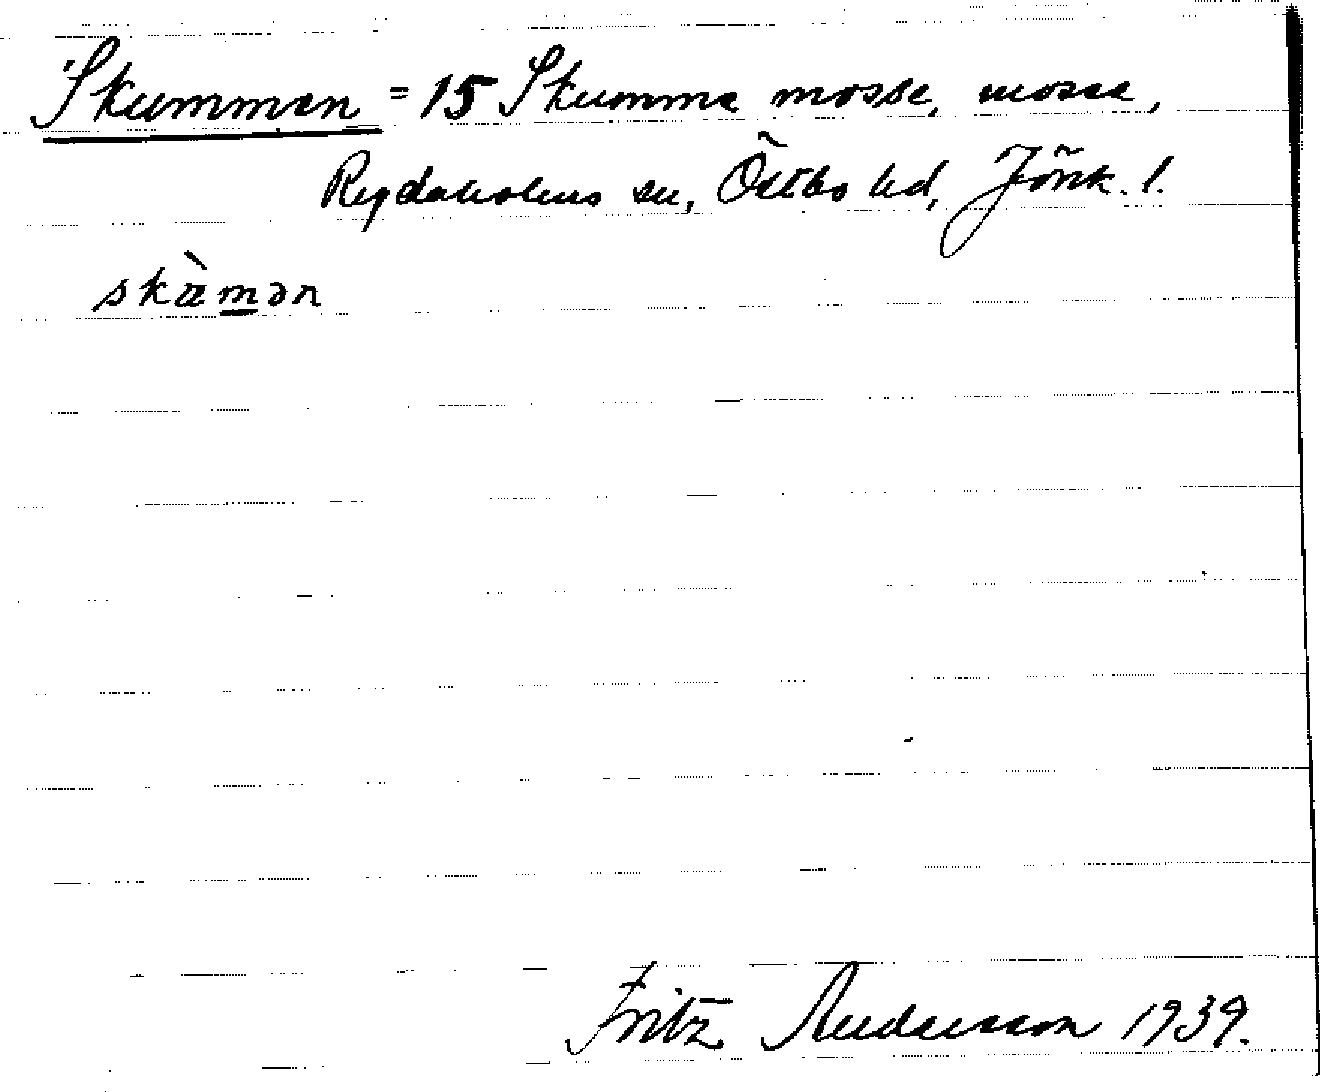 Skummen = 15 Skumma mosse, mosse,
Rydaholms sn, Östbo hd, Jönk. l.
skæ̀mən
Fritz Andersson 1939.